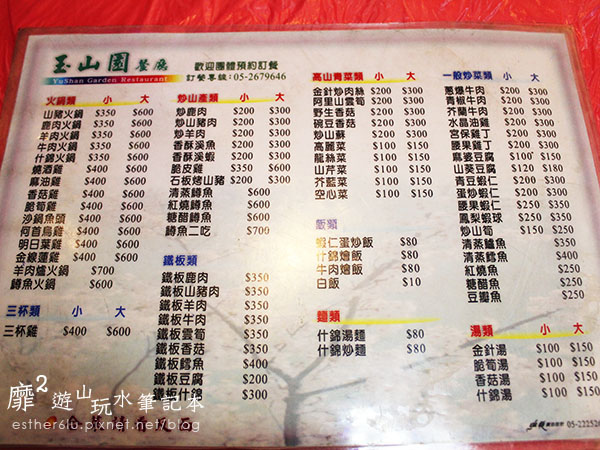 玉山園餐廳
YuShan Garden Restaurant
歡迎團體預約訂餐
訂餐專線:05-2679646
火鍋類 小 大
山豬火鍋 $350 $600
鹿肉火鍋 $350 $600
羊肉火鍋 $350 $600
牛肉火鍋 $350 $600
什錦火鍋 $350 $600
燒酒雞 $400 $600
麻油雞 $400 $600
香菇雞 $400 $600
脆筍雞 $400 $600
沙鍋魚頭 $400 $600
何首烏雞 $400 $600
明日葉雞 $400 $600
金線蓮雞 $400 $600
羊肉爐火鍋 $700
鱒魚火鍋 $600
三杯類 小 大
三杯雞 $400 $600
炒山產類 小 大
炒鹿肉 $200 $300
炒山豬肉 $200 $300
炒羊肉 $200 $300
香酥溪魚 $200 $300
香酥溪蝦 $200 $300
脆皮雞 $350 $600
石板烤山豬 $200 $300
清蒸鱒魚 $600
紅燒鱒魚 $600
糖醋鱒魚 $600
鱒魚二吃 $700
鐵板類
鐵板鹿肉 $350
鐵板山豬肉 $350
鐵板羊肉 $350
鐵板牛肉 $350
鐵板雲筍 $350
鐵板香菇 $350
鐵板鱈魚 $400
鐵板豆腐 $200
鐵板什錦 $300
高山青菜類 小 大
金針炒肉絲 $200 $300
阿里山雲筍 $200 $300
野生香菇 $200 $300
碗豆香菇 $200 $300
炒山蘇 $200 $300
高麗菜 $100 $150
龍絲菜 $100 $150
山芹菜 $100 $150
芥藍菜 $100 $150
空心菜 $100 $150
飯類
蝦仁蛋炒飯 $80
什錦燴飯 $80
牛肉燴飯 $80
白飯 $10
麵類
什錦湯麵 $80
什錦炒麵 $80
一般炒菜類 小 大
蔥爆牛肉 $200 $300
青椒牛肉 $200 $300
芥蘭牛肉 $200 $300
水晶油雞 $200 $300
宮保雞丁 $200 $300
腰果雞丁 $200 $300
麻婆豆腐 $100 $150
山葵豆腐 $120 $180
青豆蝦仁 $200 $300
蛋炒蝦仁 $200 $300
腰果蝦仁 $250 $350
鳳梨蝦球 $250 $350
炒山筍 $100 $150
清蒸鱸魚 $350
清蒸鱈魚 $400
紅燒魚 $250
糖醋魚 $250
豆瓣魚 $250
湯類 小 大
金針湯 $100 $150
脆筍湯 $100 $150
香菇湯 $100 $150
什錦湯 $100 $150
靡2遊山玩水筆記本
esther6lu.pixnet.net/blog